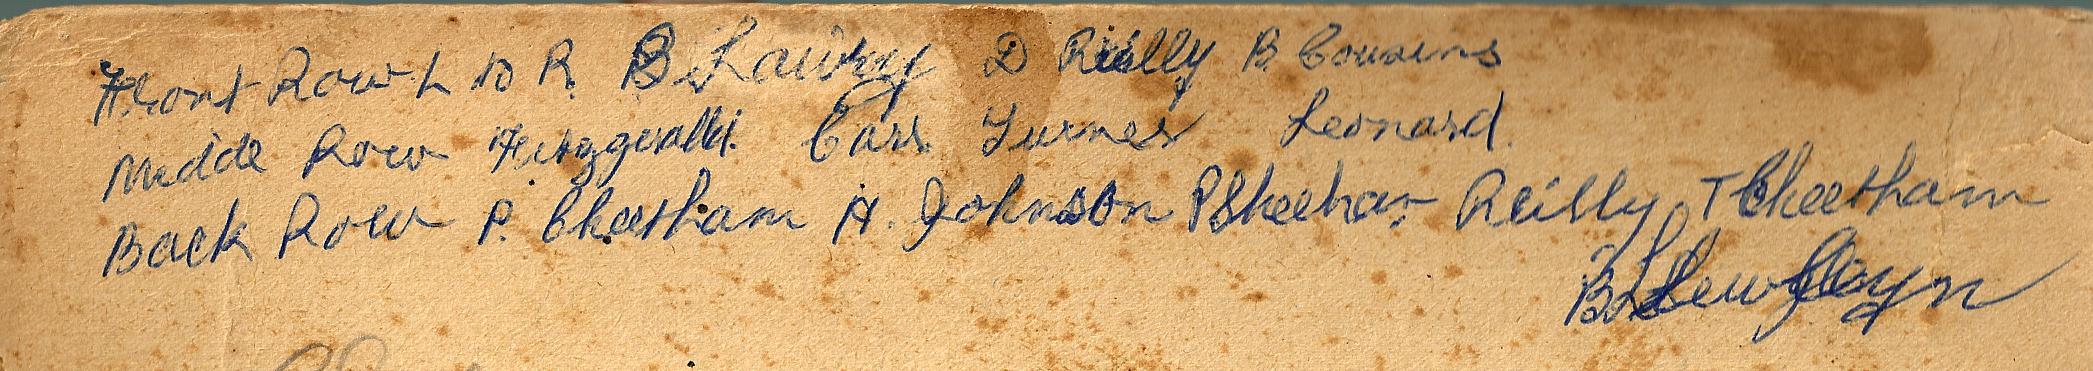 Front Row L to R. B. Lawrey D Reilly B. Cousins
Middle Row Fitzgerald. Carr. Turner Leonard.
Back Row P. Cheetham A. Johnson P Sheehan Reilly T Cheetham
B.